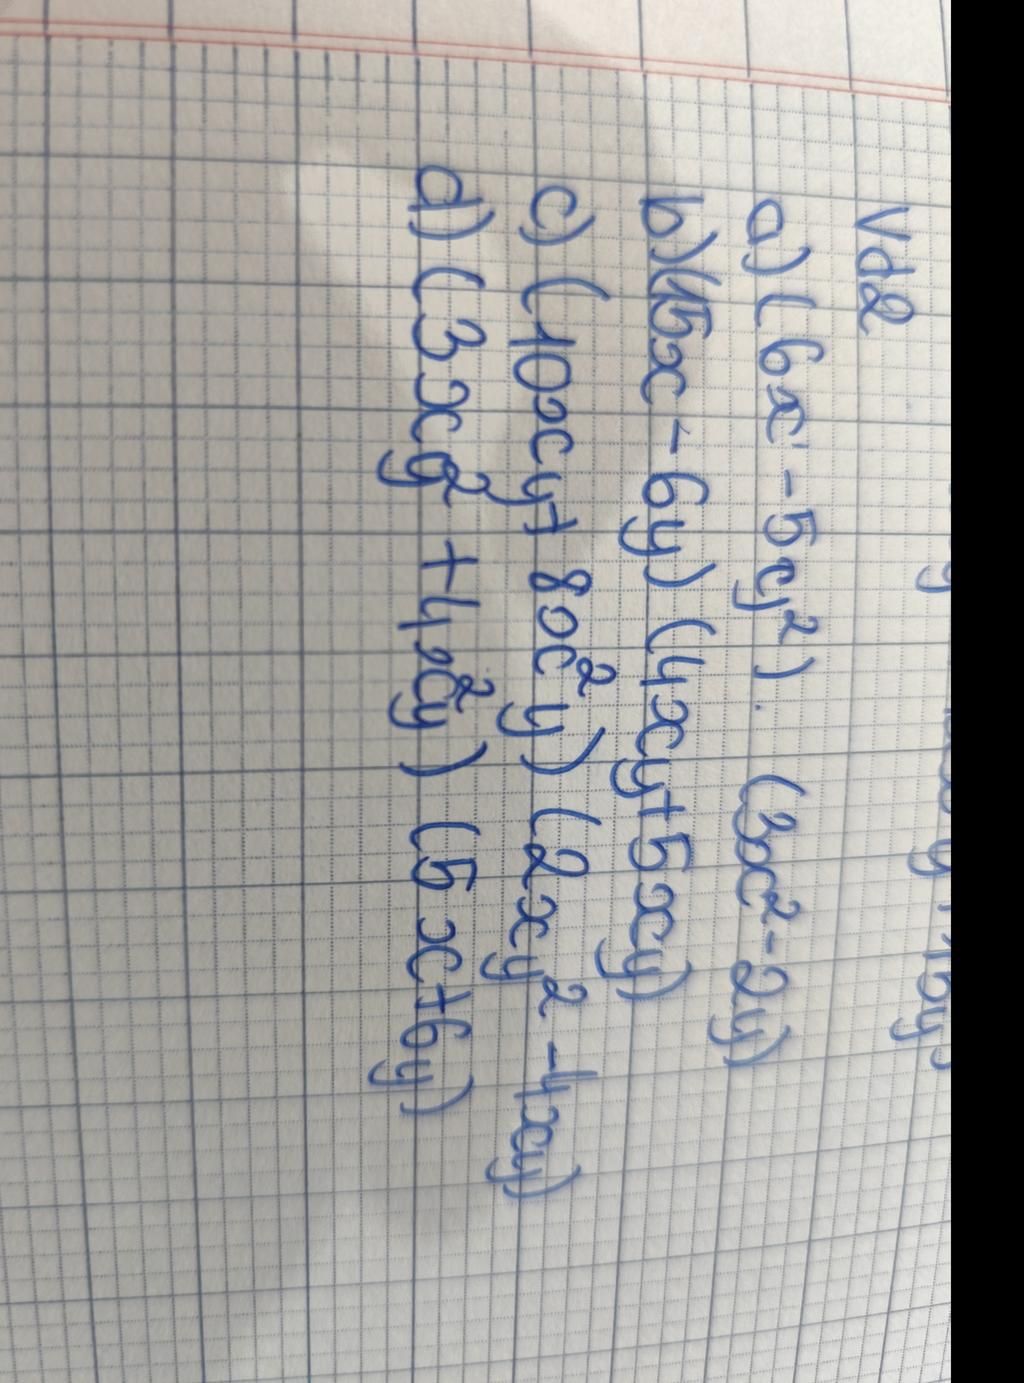 Vd2
a) (6x - 5y²). (3x² - 2y)
b) (15x - 6y) (4xy + 5xy)
c) (10xy + 8x²y) (2xy² - 4xy)
d) (3xy² + 4x²y) (5x + 6y)